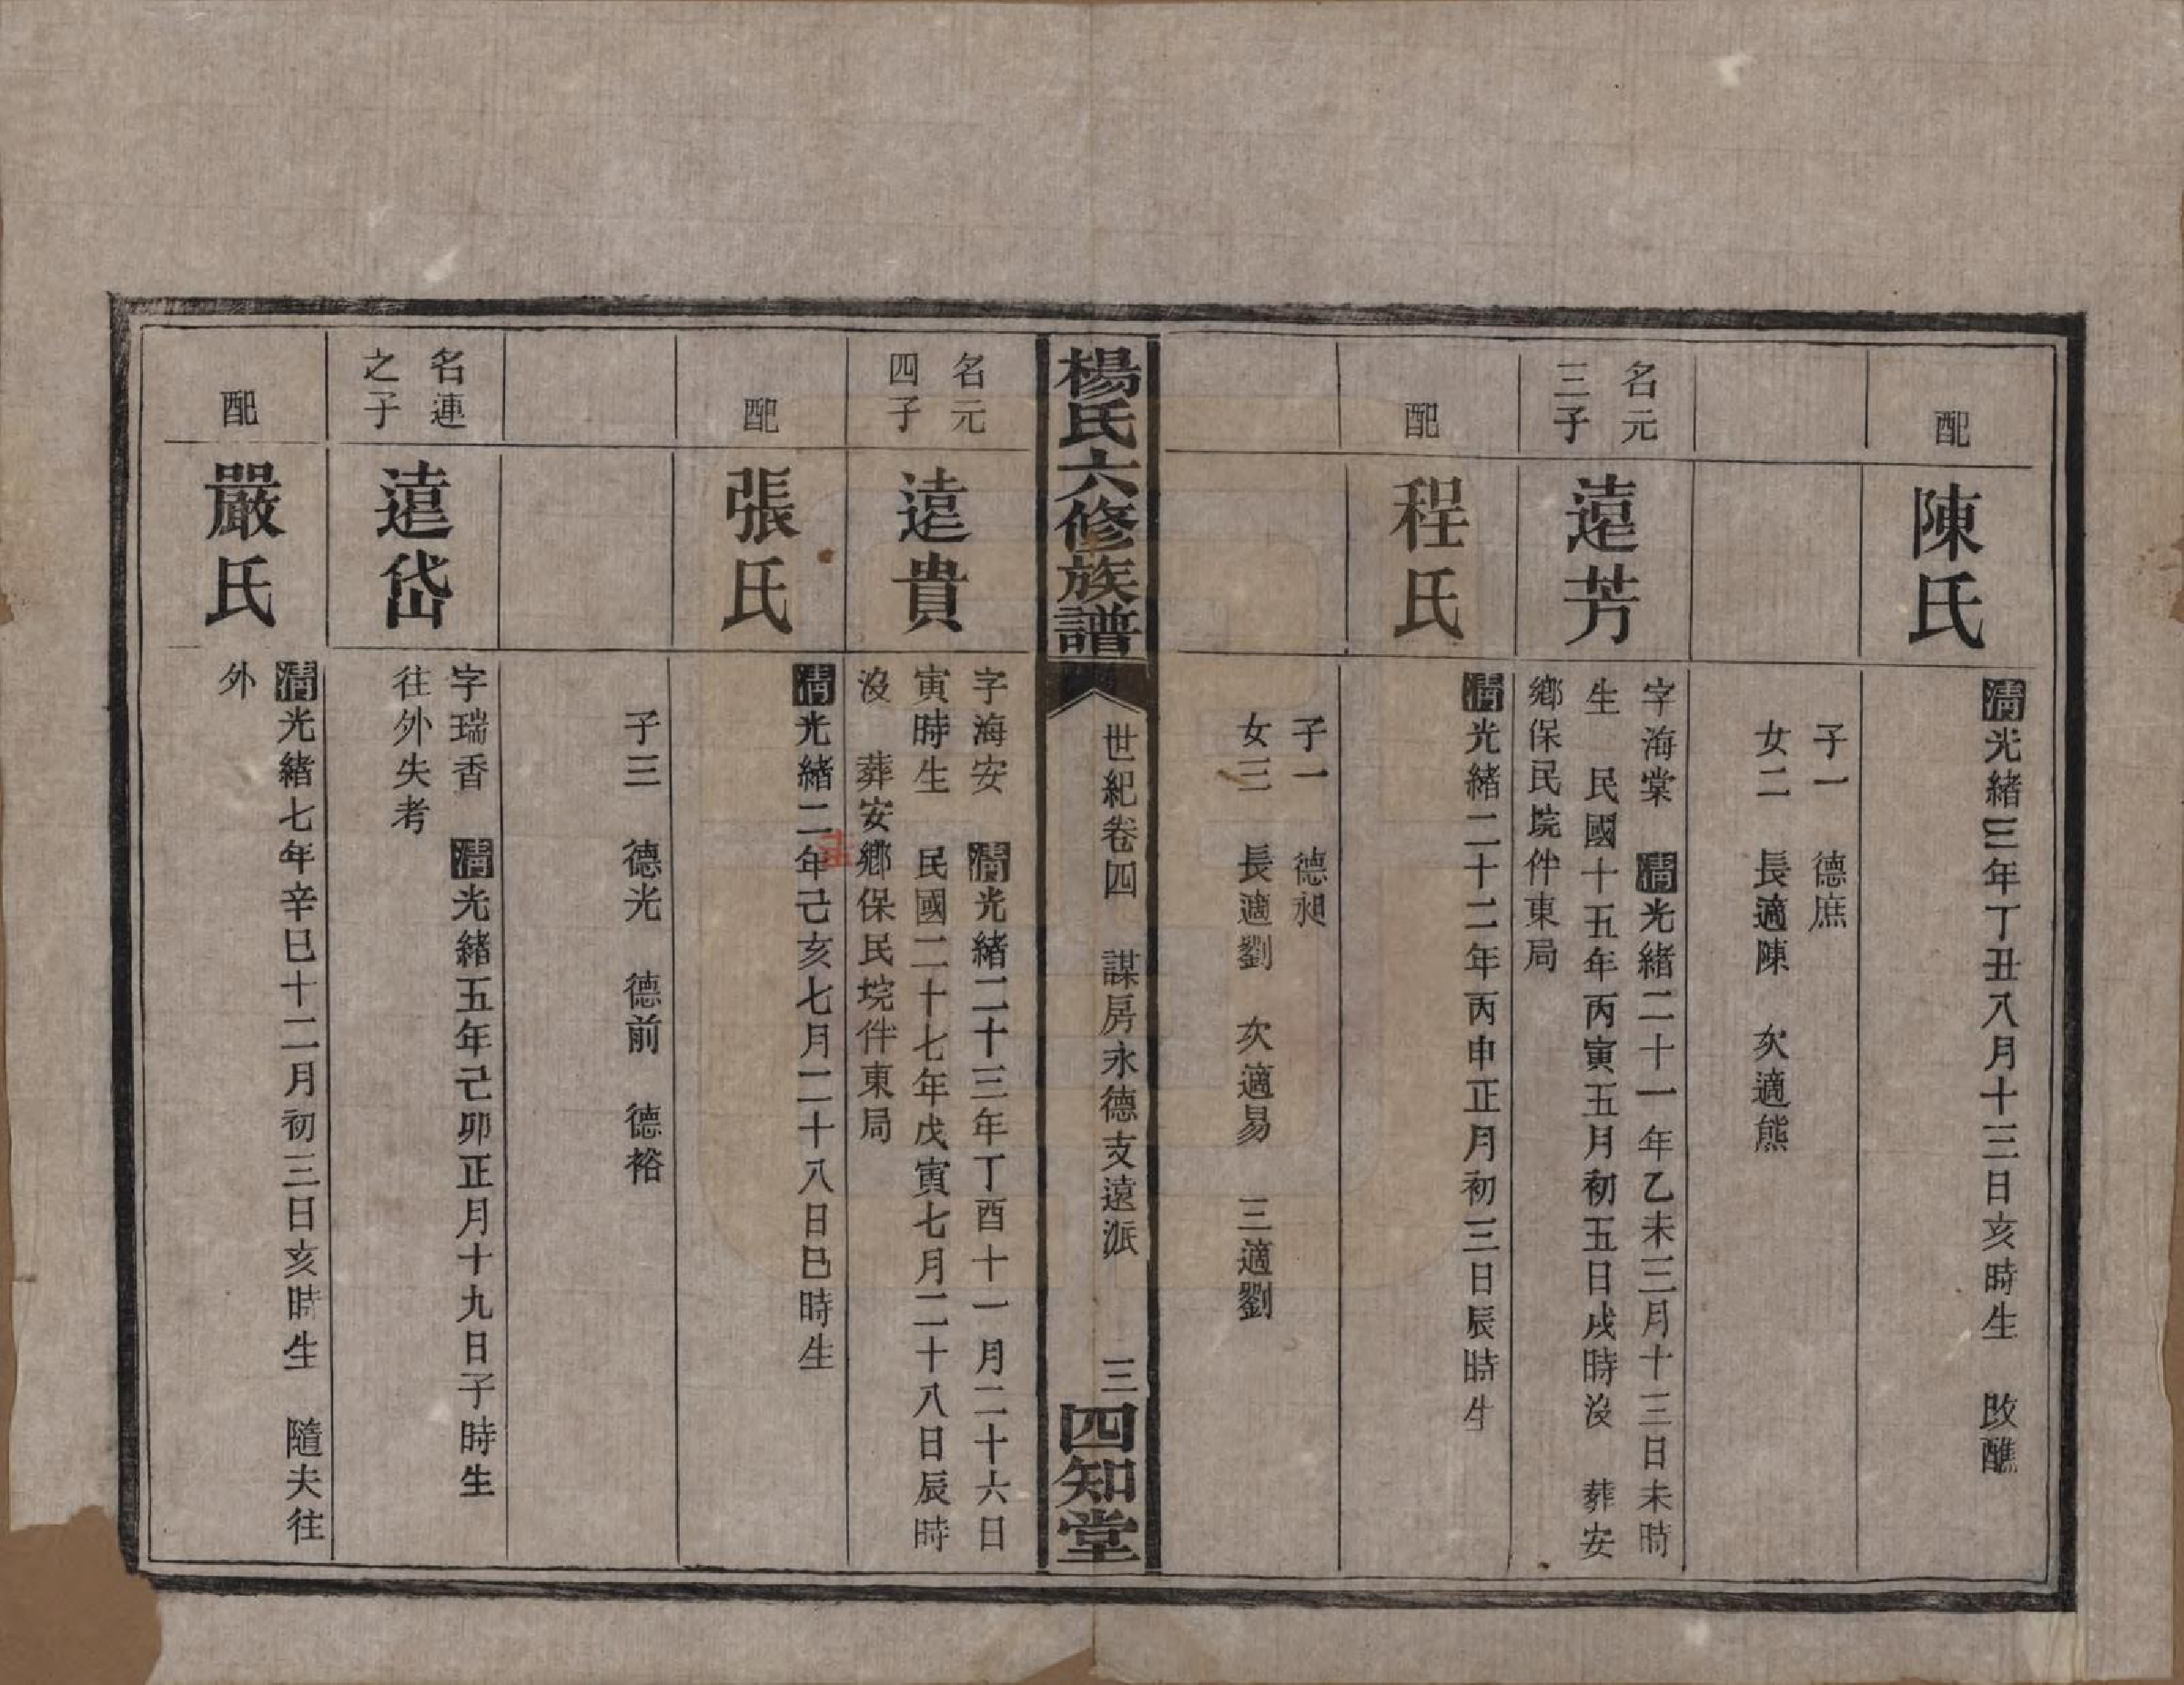 配
陳氏
清光緒三年丁丑八月十三日亥時生　改醮
子一　德庶
女二　長適陳　次適熊
名元
三子
遠芳
字海棠　清光緒二十一年乙未三月十三日未時
生　民國十五年丙寅五月初五日戌時沒　葬安
鄉保民垸件東局
配
程氏
清光緒二十二年丙申正月初三日辰時生
子一　德昶
女三　長適劉　次適易　三適劉
楊氏六修族譜
世紀卷四　謀房永德支遠派　三
四知堂
名元
四子
遠貴
字海安　清光緒二十三年丁酉十一月二十六日
寅時生　民國二十七年戊寅七月二十八日辰時
沒　葬安鄉保民垸件東局
配
張氏
清光緒二年己亥七月二十八日巳時生
子三　德光　德前　德裕
名連
之子
遠岱
字瑞香　清光緒五年己卯正月十九日子時生
往外失考
配
嚴氏
清光緒七年辛巳十二月初三日亥時生　隨夫往
外